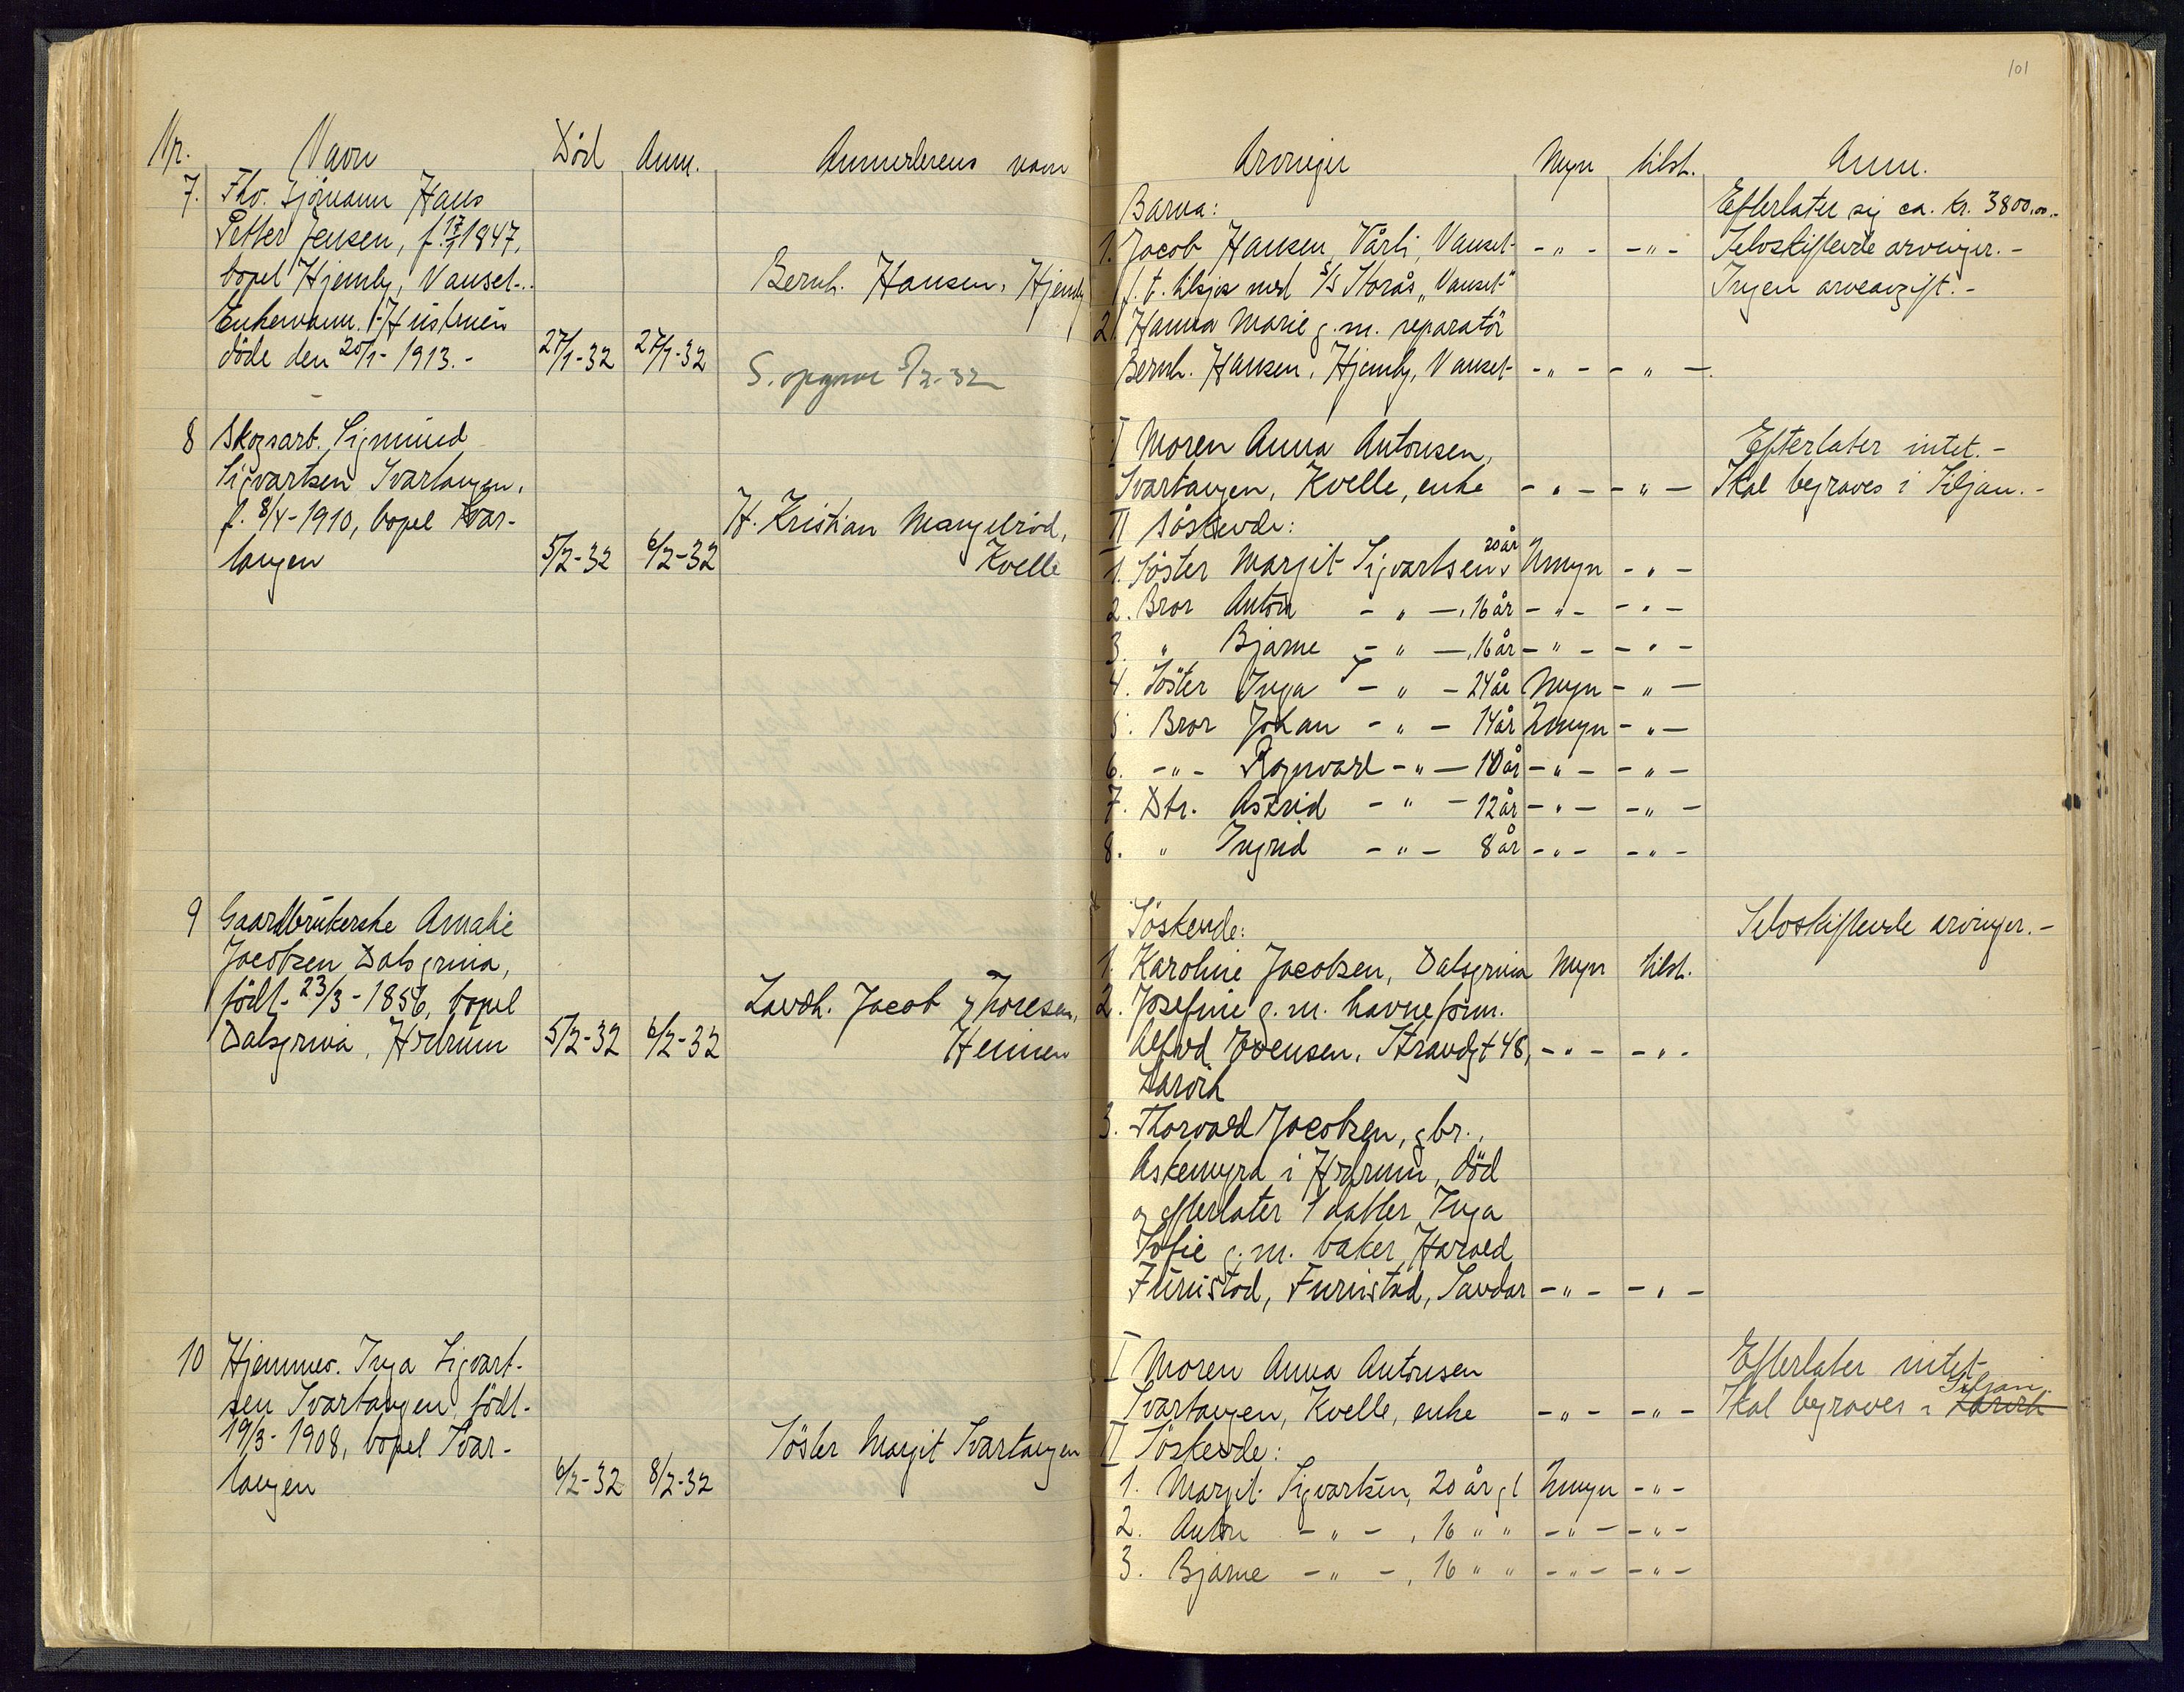 101
Nr. Navn Död Anm. Anmelderens navn
7. Fhv. Sjömann Hans
Petter Jensen, f. 17/1 1847,
bopel Hjemly, Nanset.
Enkemann. Hustruen
döde den 20/1- 1913.- 27/1-32 27/1-32
Bernh. Hansen, Hjemly
S. opgave 5/2-32
8 Skogsarb. Sigmund
Sigvartsen Svartangen,
f. 8/4-1910, bopel Svar-
tangen 5/2-32 6/2-32
H. Kristian Mangelröd,
Kvelle
9 Gaardbrukerske Amalie
Jacobsen Dalsgrina,
födt 23/3-1856, bopel
Dalsgrina, Hedrum 5/2-32 6/2-32
Lavdh. Jacob Thoresen,
Heinen
10 Hjemmev. Inga Sigvart-
sen Svartangen, födt
19/3-1908, bopel Svar-
tangen 6/2-32 8/2-32
Söster Margit Svartangen
Arvinger Myn tilst. Anm.
Barna: Efterlater sig ca. kr. 3800,00.-
1. Jacob Hansen, Vårli, Nanset -"- -"- Selvskiftende arvinger.-
f. t. tilsjøs med S/S Storås, "Nanset" Ingen arveavgift.-
2. Hanna Marie g.m. reparatör
Bernh. Hansen, Hjemly, Nanset -"- -"-
I Moren Anna Antonsen, Efterlater intet.-
Svartangen, Kvelle, enke -"- -"- Skal begraves i Siljan.-
II Söskende:
1. Söster Margit Sigvartsen, 20 år Umyn -"-
2. Bror Anton -"-, 16 år -"- -"-
3. " Bjarne -"-, 16 år -"- -"-
4. Söster Inga -"- 24 år Myn -"-
5. Bror Johan -"- 14 år Umyn -"-
6. -"- Ragnvald -"- 10 år -"- -"-
7. Dtr. Astrid -"- 12 år -"- -"-
8. " Ingrid -"- 8 år -"- -"-
Söskende: Selvskiftende arvinger.-
1. Karoline Jacobsen, Dalsgrina Myn tilst.
2. Josefine g.m. havneform.
Alfred Evensen, Strandgt 48, -"- -"-
Larvik
3. Thorvald Jacobsen, gbr.,
Askemyra i Hedrum, död
og efterlater 1 datter Inga
Sofie g.m. baker Harald
Furustad, Furustad, Sandar -"- -"-
I Moren Anna Antonsen Efterlater intet
Svartangen, Kvelle, enke -"- -"- Skal begraves i Larvik Siljan.
II Söskende:
1. Margit Sigvartsen, 20 år gl Umyn -"-
2. Anton -"-, 16 " " -"- -"-
3. Bjarne -"-, 16 " " -"- -"-